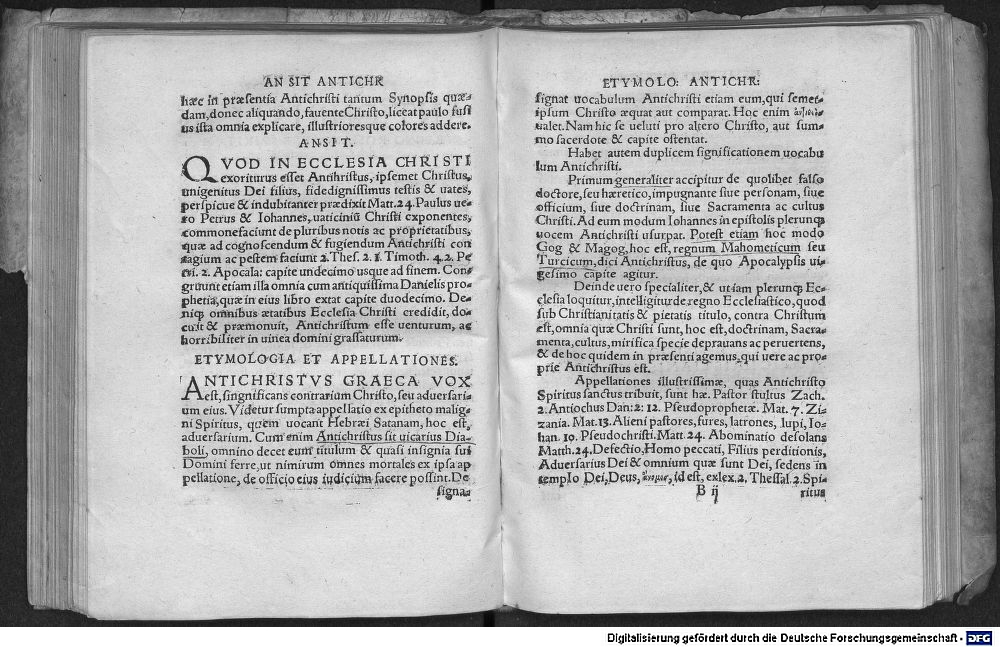 AN SIT ANTICHR
hæc in præsentia Antichristi tantum Synopsis quæ-
dam, donec aliquando, fauente Christo, liceat paulo fusi
us ista omnia explicare, illustrioresque colores addere.
AN SIT.
QVOD IN ECCLESIA CHRISTI
exoriturus esset Antihristus, ipsemet Christus,
unigenitus Dei filius, fidedignissimus testis & uates,
perspicue & indubitanter prædixit Matt. 24. Paulus ue-
ro Petrus & Iohannes, uaticiniũ Christi exponentes,
commonefaciunt de pluribus notis ac proprietatibus,
quæ ad cognoscendum & fugiendum Antichristi con
tagium ac pestem faciunt 2. Thes. 2. 1. Timoth. 4. 2. Pe
tri. 2. Apocala: capite undecimo usque ad finem. Con-
gruunt etiam illa omnia cum antiquissima Danielis pro-
phetia, quæ in eius libro extat capite duodecimo. De-
niqȝ omnibus ætatibus Ecclesia Christi credidit, do-
cuit & præmonuit, Antichristum esse uenturum, ac
horribiliter in uinea domini grassaturum.
ETYMOLOGIA ET APPELLATIONES.
ANTICHRISTVS GRAECA VOX
est, singnificans contrarium Christo, seu aduersari-
um eius. Videtur sumpta appellatio ex epitheto malig-
ni Spiritus, quem uocant Hebræi Satanam, hoc est,
aduersarium. Cum enim Antichristus sit uicarius Dia-
boli, omnino decet eum titulum & quasi insignia sui
Domini ferre, ut nimirum omnes mortales ex ipsa ap
pellatione, de officio eius iudicium facere possint. De
signa-
ETYMOLO: ANTICHR:
signat uocabulum Antichristi etiam eum, qui semet-
ipsum Christo æquat aut comparat. Hoc enim
ualet. Nam hic se ueluti pro altero Christo, aut sum-
mo sacerdote & capite ostentat.
Habet autem duplicem significationem uocabu
lum Antichristi.
Primum generaliter accipitur de quolibet falso
doctore, seu hæretico, impugnante siue personam, siue
officium, siue doctrinam, siue Sacramenta ac cultus
Christi. Ad eum modum Iohannes in epistolis plerunqȝ
uocem Antichristi usurpat. Potest etiam hoc modo
Gog & Magog, hoc est, regnum Mahometicum seu
Turcicum, dici Antichristus, de quo Apocalypsis ui-
gesimo capite agitur.
Deinde uero specialiter, & ut iam plerunqȝ Ec-
clesia loquitur, intelligitur de regno Ecclesiastico, quod
sub Christianitatis & pietatis titulo, contra Christum
est, omnia quæ Christi sunt, hoc est, doctrinam, Sacra-
menta, cultus, mirifica specie deprauans ac peruertens,
& de hoc quidem in præsenti agemus, qui uere ac pro-
prie Antichristus est.
Appellationes illustrissimæ, quas Antichristo
Spiritus sanctus tribuit, sunt hæ. Pastor stultus Zach.
2. Antiochus Dan: 2: 12. Pseudoprophetæ. Mat. 7. Zi-
zania. Mat. 13. Alieni pastores, fures, latrones, lupi, Io-
han. 10. Pseudochristi. Matt. 24. Abominatio desolans
Matth. 24. Defectio, Homo peccati, Filius perditionis,
Aduersarius Dei & omnium quæ sunt Dei, sedens in
templo Dei, Deus, ἄνομος, id est, exlex. 2. Thessal. 2. Spi-
B ij
ritus
Digitalisierung gefördert durch die Deutsche Forschungsgemeinschaft - DFG